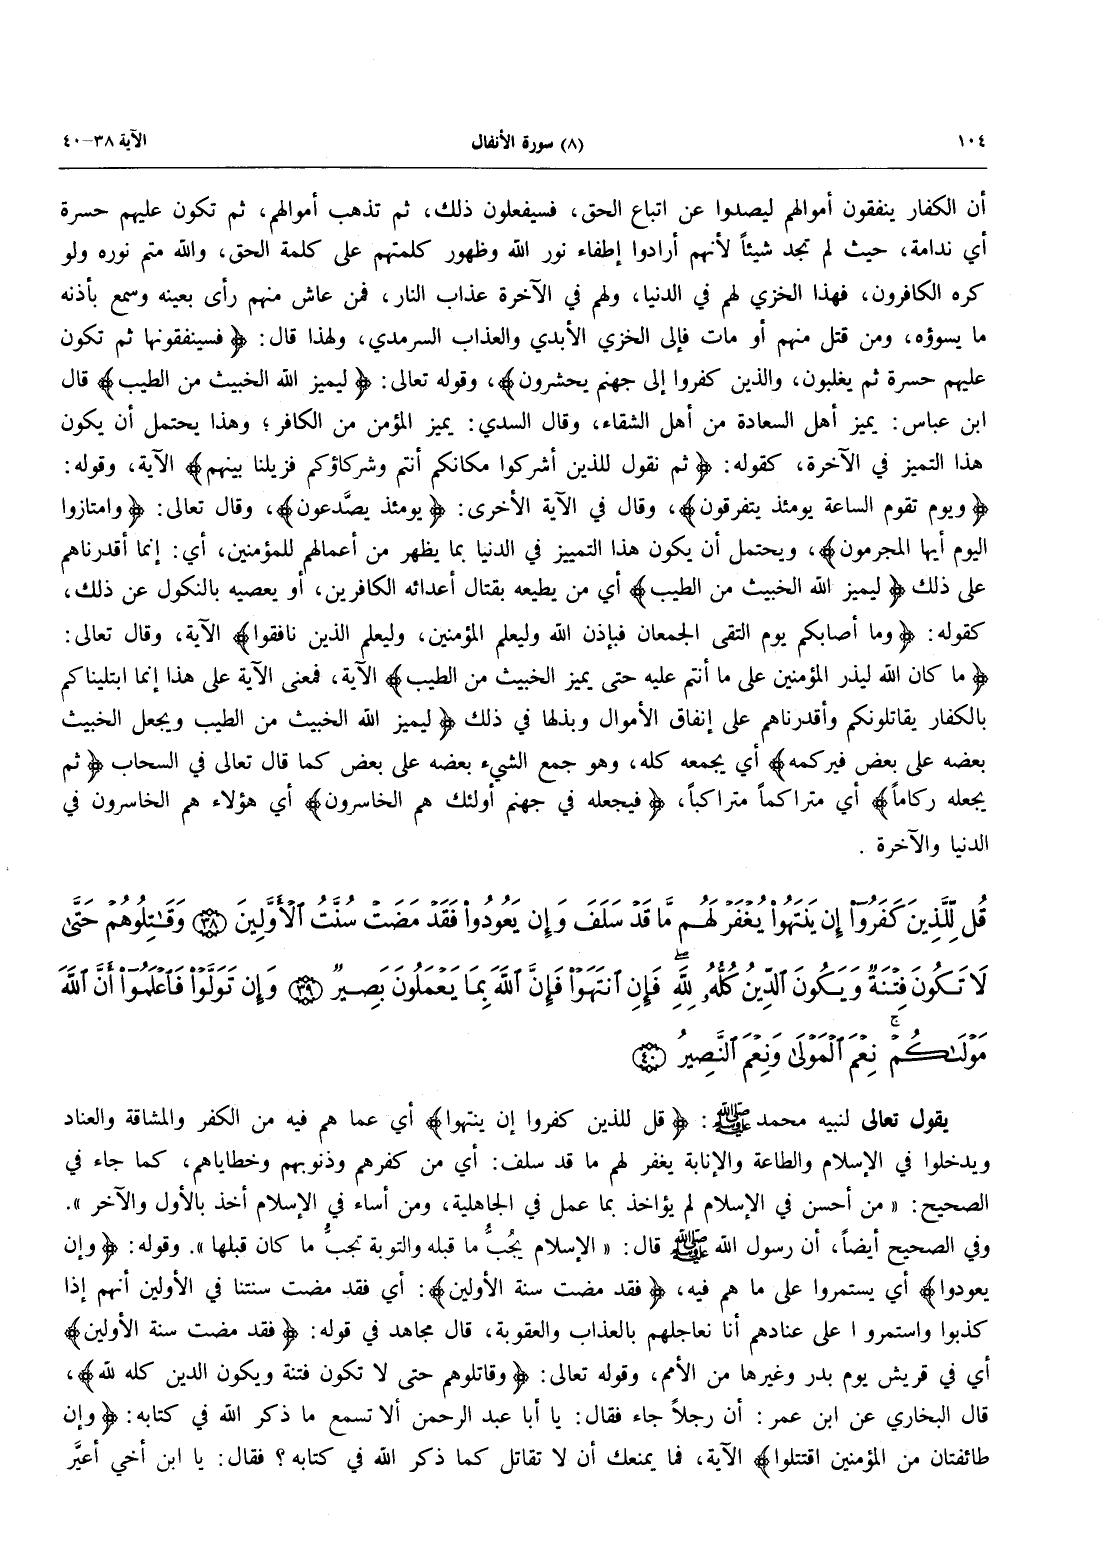 ١٠٤ (٨) سورة الأنفال الآية ٣٨-٤٠
أن الكفار ينفقون أموالهم ليصدوا عن اتباع الحق، فسيفعلون ذلك، ثم تذهب أموالهم، ثم تكون عليهم حسرة
أي ندامة، حيث لم تجد شيئاً لأنهم أرادوا إطفاء نور الله وظهور كلمتهم على كلمة الحق، والله متم نوره ولو
كره الكافرون، فهذا الخزي لهم في الدنيا، ولهم في الآخرة عذاب النار، فمن عاش منهم رأى بعينه وسمع بأذنه
ما يسوؤه، ومن قتل منهم أو مات فإلى الخزي الأبدي والعذاب السرمدي، ولهذا قال: ﴿فسينفقونها ثم تكون
عليهم حسرة ثم يغلبون، والذين كفروا إلى جهنم يحشرون﴾، وقوله تعالى: ﴿ليميز الله الخبيث من الطيب﴾ قال
ابن عباس: يميز أهل السعادة من أهل الشقاء، وقال السدي: يميز المؤمن من الكافر؛ وهذا يحتمل أن يكون
هذا التميز في الآخرة، كقوله: ﴿ثم نقول للذين أشركوا مكانكم أنتم وشركاؤكم فزيلنا بينهم﴾ الآية، وقوله:
﴿ويوم تقوم الساعة يومئذ يتفرقون﴾، وقال في الآية الأخرى: ﴿يومئذ يصَّدعون﴾، وقال تعالى: ﴿وامتازوا
اليوم أيها المجرمون﴾، ويحتمل أن يكون هذا التمييز في الدنيا بما يظهر من أعمالهم للمؤمنين، أي: إنما أقدرناهم
على ذلك ﴿ليميز الله الخبيث من الطيب﴾ أي من يطيعه بقتال أعدائه الكافرين، أو يعصيه بالنكول عن ذلك،
كقوله: ﴿وما أصابكم يوم التقى الجمعان فبإذن الله وليعلم المؤمنين، وليعلم الذين نافقوا﴾ الآية، وقال تعالى:
﴿ما كان الله ليذر المؤمنين على ما أنتم عليه حتى يميز الخبيث من الطيب﴾ الآية، فمعنى الآية على هذا إنما ابتليناكم
بالكفار يقاتلونكم وأقدرناهم على إنفاق الأموال وبذلها في ذلك ﴿ليميز الله الخبيث من الطيب ويجعل الخبيث
بعضه على بعض فيركمه﴾ أي يجمعه كله، وهو جمع الشيء بعضه على بعض كما قال تعالى في السحاب ﴿ثم
يجعله ركاماً﴾ أي متراكماً متراكباً، ﴿فيجعله في جهنم أولئك هم الخاسرون﴾ أي هؤلاء هم الخاسرون في
الدنيا والآخرة .
قُل لِّلَّذِينَ كَفَرُوٓاْ إِن يَنتَهُواْ يُغْفَرْ لَهُم مَّا قَدْ سَلَفَ وَإِن يَعُودُواْ فَقَدْ مَضَتْ سُنَّتُ ٱلْأَوَّلِينَ ﴿٣٨﴾ وَقَٰتِلُوهُمْ حَتَّىٰ
لَا تَكُونَ فِتْنَةٌ وَيَكُونَ ٱلدِّينُ كُلُّهُۥ لِلَّهِ ۚ فَإِنِ ٱنتَهَوْاْ فَإِنَّ ٱللَّهَ بِمَا يَعْمَلُونَ بَصِيرٌ ﴿٣٩﴾ وَإِن تَوَلَّوْاْ فَٱعْلَمُوٓاْ أَنَّ ٱللَّهَ
مَوْلَىٰكُمْ ۚ نِعْمَ ٱلْمَوْلَىٰ وَنِعْمَ ٱلنَّصِيرُ ﴿٤٠﴾
يقول تعالى لنبيه محمد ﷺ: ﴿قل للذين كفروا إن ينتهوا﴾ أي عما هم فيه من الكفر والمشاقة والعناد
ويدخلوا في الإسلام والطاعة والإنابة يغفر لهم ما قد سلف: أي من كفرهم وذنوبهم وخطاياهم، كما جاء في
الصحيح: « من أحسن في الإسلام لم يؤاخذ بما عمل في الجاهلية، ومن أساء في الإسلام أخذ بالأول والآخر ».
وفي الصحيح أيضاً، أن رسول الله ﷺ قال: « الإسلام يجُبُّ ما قبله والتوبة تجبُّ ما كان قبلها ». وقوله: ﴿وإن
يعودوا﴾ أي يستمروا على ما هم فيه، ﴿فقد مضت سنة الأولين﴾: أي فقد مضت سنتنا في الأولين أنهم إذا
كذبوا واستمرو ا على عنادهم أنا نعاجلهم بالعذاب والعقوبة، قال مجاهد في قوله: ﴿فقد مضت سنة الأولين﴾
أي في قريش يوم بدر وغيرها من الأمم، وقوله تعالى: ﴿وقاتلوهم حتى لا تكون فتنة ويكون الدين كله لله﴾،
قال البخاري عن ابن عمر: أن رجلاً جاء فقال: يا أبا عبد الرحمن ألا تسمع ما ذكر الله في كتابه: ﴿وإن
طائفتان من المؤمنين اقتتلوا﴾ الآية، فما يمنعك أن لا تقاتل كما ذكر الله في كتابه؟ فقال: يا ابن أخي أعيَّر